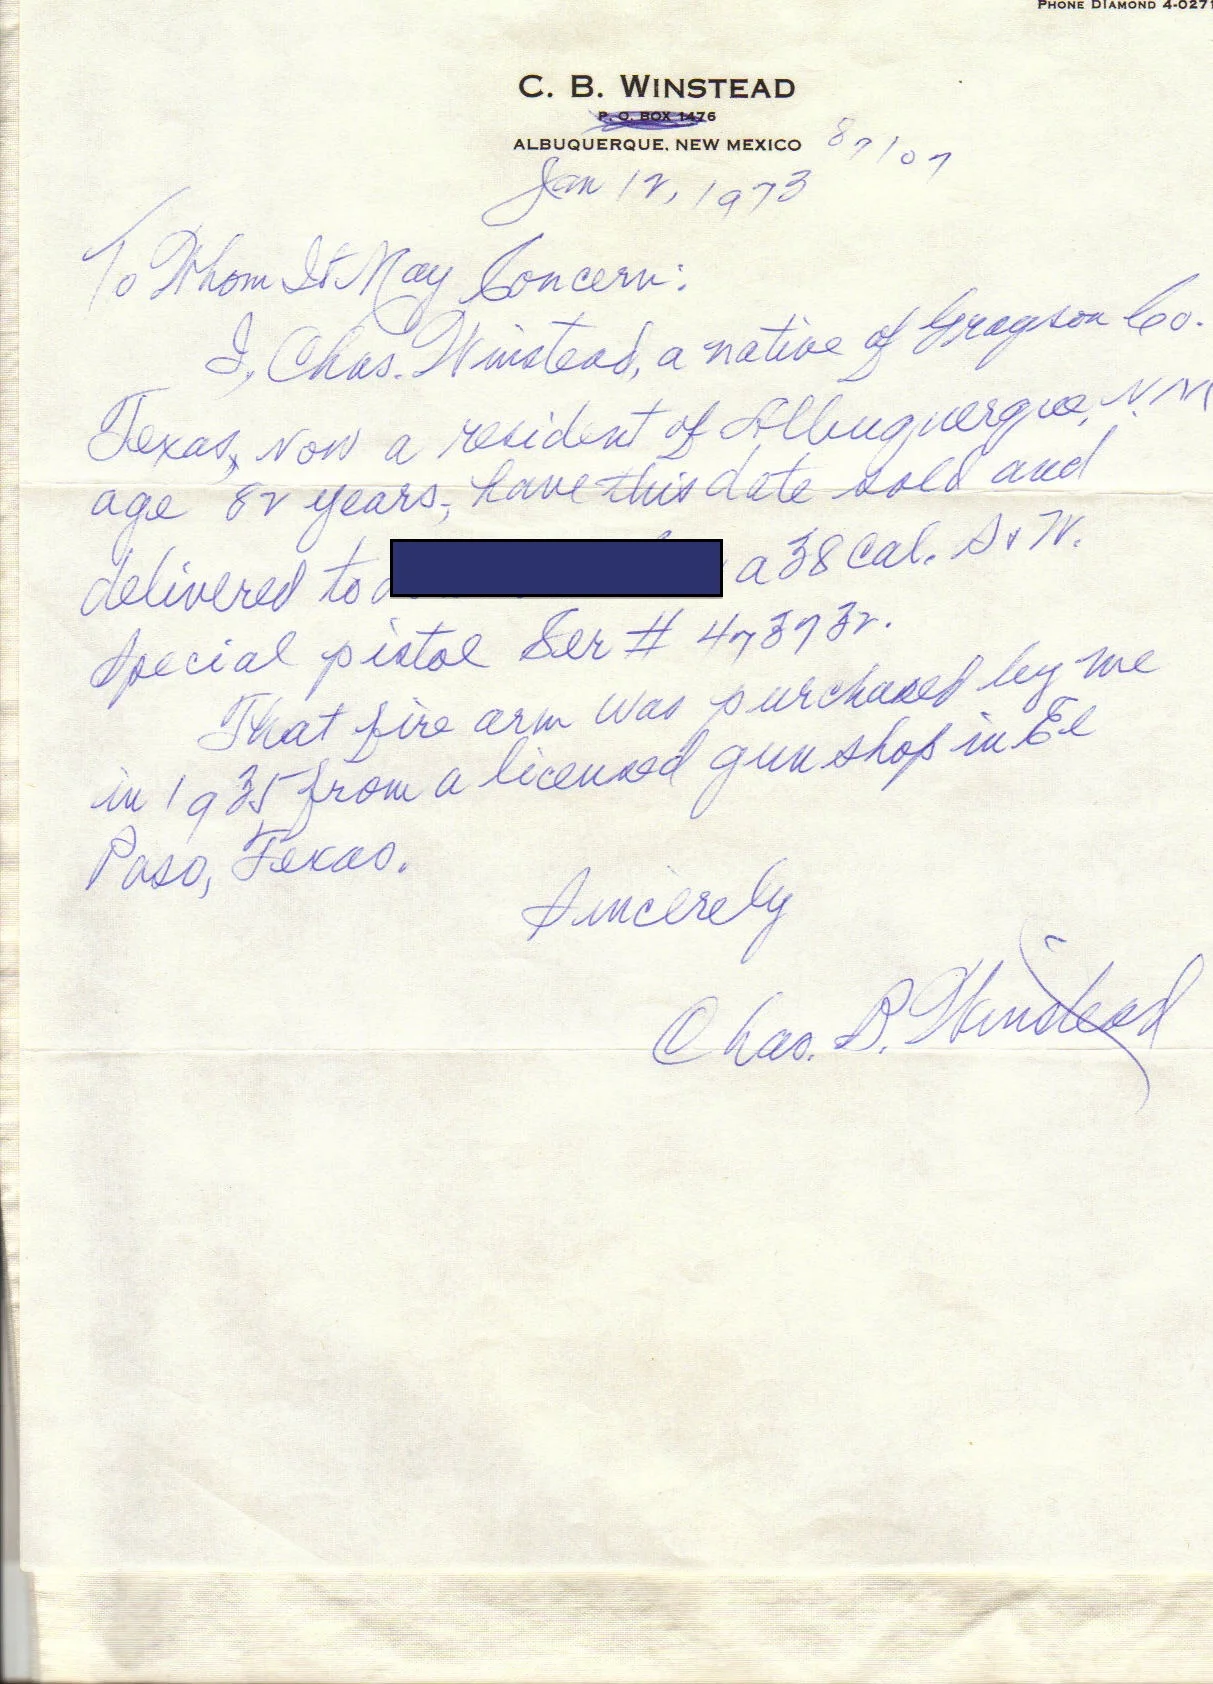 PHONE DIAMOND 4-0271
C. B. WINSTEAD
P. O. BOX 1476
ALBUQUERQUE, NEW MEXICO 87107
Jan 12, 1973
To Whom It May Concern:
I, Chas. Winstead, a native of Grayson Co.
Texas, Now a resident of Albuquerque, NM
age 82 years, have this date sold and
delivered to a 38 Cal. S & W.
Special pistol Ser # 473732.
That fire arm was purchased by me
in 1935 from a licensed gun shop in El
Paso, Texas.
Sincerely
Chas. B. Winstead